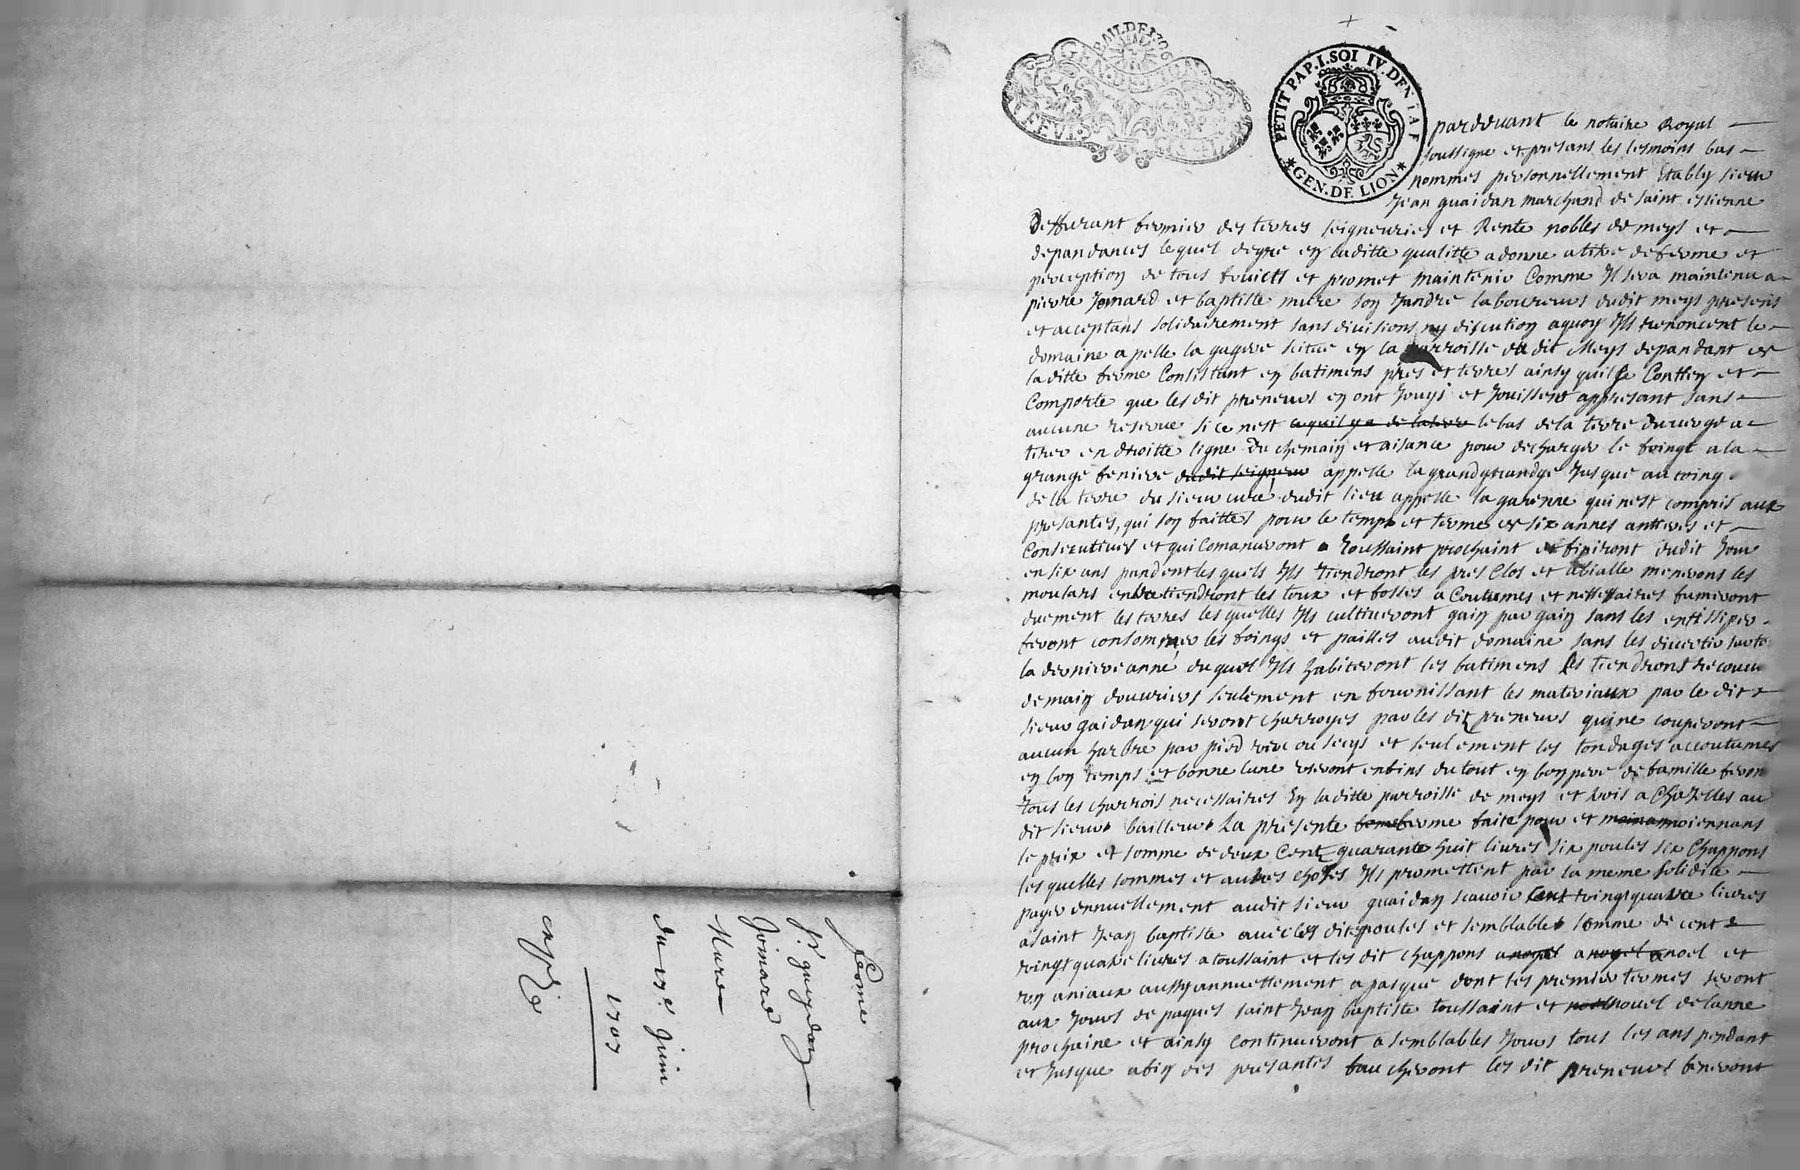 ferme
Sr. guaydan
Joinard
Mure
du 17e. Juin
1707
expedie
BAIL DE 1706
PETIT PAP. I. SOL IV. DEN. LA F.
GEN. DE LION
pardevant le notaire Royal
soussigne et presans les tesmoins bas
nommes personnellement Estably sieur
Jean guaidan marchand de saint estienne
de ffurant fermier des terres seigneuries et Rente nobles de meys et
depandances lequel degre en laditte qualitte a donne a titre de ferme et
perception de tous fruicts et promet maintenir Comme Il sera maintenu a
pierre Joinard et baptiste mure son Jandre laboureurs dudit meys presens
et acceptans solidairement sans divisions ny discution a quoy Ils renoncent le
domaine apelle la gagere scitue en la parroisse du dit Meys depandant de
laditte ferme Consistant en batimens pres et terres ainsy quil se Contien et
Comporte que les dit preneurs en ont Jouys et Jouissent appresant sans
aucune reserve si ce nest le bas de la terre du verge a
tirer en droitte ligne Du chemain et aisance pour decharger le foingt a la
grange feniere dudit seigneur appelle la grand grandge Jusque au coing
de la terre du sieur cure dudit lieu appelle la garenne qui nest compris aux
presantes, qui son faittes pour le temps et terme de six annes antieres et
Consecutives et qui Comanceront a Toussaint prochaint et finiront dudit Jour
en six ans pandent lesquels Ils tiendront les pres Clos et abialle menerons les
moulars entretiendront les toux et fosses a Coutumes et nessessaires fumeront
duement les terres les quelles Ils cultiveront gain par gain sans les
feront consommer les foings et pailles audit domaine sans les divertir
la derniere anne duquel Ils habiteront les batimens les tiendront recouvert
de main douvriers seulement en fournissant les materiaux par le dit
sieur gaidan qui seront charroyes par les dit preneurs qui ne couperont
aucun harbre par pied vive ou secqs et seulement les tondages accoutumes
en bon temps et bonne lune useront enfins du tout en bon pere de famille feron
tous les charrois necessaires En laditte parroisse de meys et trois a Chazelles au
dit sieur bailleur La presente ferme faite pour et moiennans
le prix et somme de deux Cent quarante huit livres six poules six Chappons
les quelles sommes et autres choses Ils promettent par la meme solidite
payer annuellement audit sieur guaidan scavoir Cent vingt quatre livres
a saint Jean baptiste avec les dit poules et semblable somme de cent
vingt quatre livres a toussaint et les dit chappons a noel et
un aniaux aussy annuellement a pasque dont les premier termes seront
aux Jours de paques saint Jean baptiste toussaint et nouel de lanne
prochaine et ainsy Continueront a semblables Jours tous les ans pendant
et Jusque a fin des presantes faucheront les dit preneurs feneront